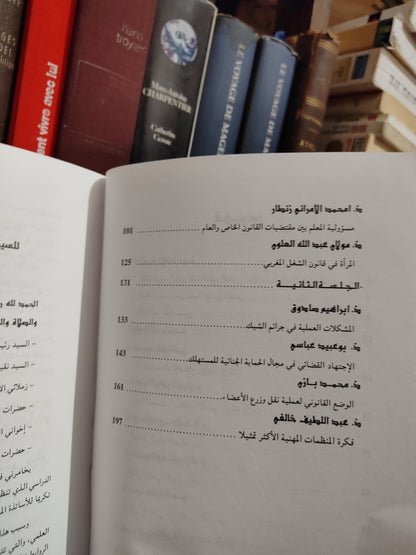 nana
troyat
Marc-Antoine
CHARPENTIER
Catherine
Cessac
LE VOYAGE DE MAGE
LE VOYAGE DE MAG
ent vivre avec lui
د. امحمد الامراني زنطار
مسؤولية المعلم بين مقتضيات القانون الخاص والعام ........ 101
د. مولاي عبد الله العلوي
المرأة في قانون الشغل المغربي ........ 125
-الجلسة الثانية ........ 131
د. ابراهيم صادوق
المشكلات العملية في جرائم الشيك ........ 133
د. بوعبيد عباسي
الإجتهاد القضائي في مجال الحماية الجنائية للمستهلك ........ 143
د. محمد بازي
الوضع القانوني لعملية نقل وزرع الأعضاء ........ 161
د. عبد اللطيف خالفي
فكرة المنظمات المهنية الأكثر تمثيلا ........ 197
للسي
الحمد لله ر
والصلاة والـ
- السيد رئي
- السيد نقي
- زملائي الأ
- حضرات
- إخواني ال
- حضرات
يخامرني ف
الدراسي الذي تنظ
تكريما للأساتذة الم
وسبب هذا
العلمي، والتي تنت